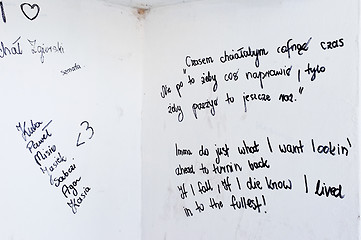 I ♡
chał Zgierski
semota
Kuba
Paweł
Misio
Maciek
Sabai
Aga
Kasia
<3
"Czasem chciałabym cofnąć czas
Nie po to żeby coś naprawić, tylko
żeby przeżyć to jeszcze raz."
Imma do just what I want lookin'
ahead to turnin back
If I fall, if I die know I lived
in to the fullest!